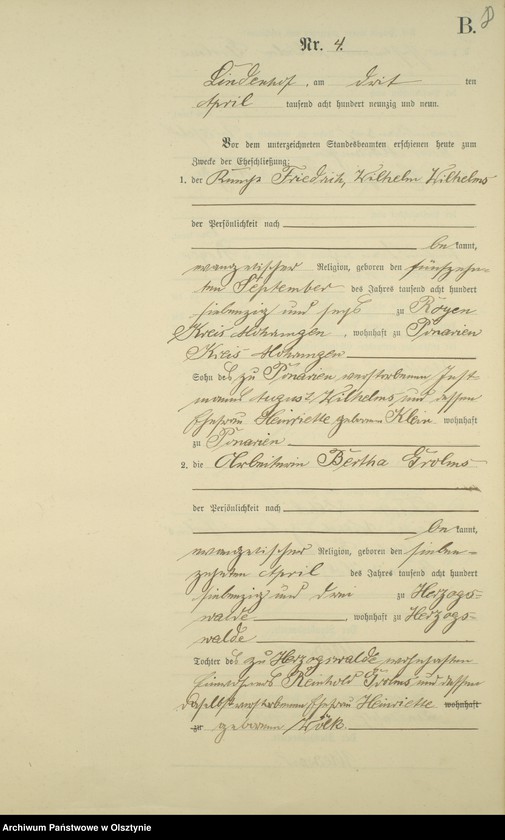 B.
Nr. 4.
Lindenhof, am drit ten
April tausend acht hundert neunzig und neun.
Vor dem unterzeichneten Standesbeamten erschienen heute zum
Zwecke der Eheschließung:
1. der Friedrich, Wilhelm Wilhelms
der Persönlichkeit nach
be kannt,
evangelischer Religion, geboren den fünfzehn-
ten September des Jahres tausend acht hundert
siebenzig und sechs zu Royen
Kreis Mohrungen, wohnhaft zu Ponarien
Kreis Mohrungen
Sohn des zu Ponarien verstorbenen Inst-
manns August Wilhelms und dessen
Ehefrau Henriette geborene Klein wohnhaft
zu Ponarien
2. die Arbeiterin Bertha Grolms
der Persönlichkeit nach
be kannt,
evangelischer Religion, geboren den sieben-
zehnten April des Jahres tausend acht hundert
siebenzig und drei zu Herzogs-
walde, wohnhaft zu Herzogs-
walde
Tochter des zu Herzogswalde wohnhaften
Einwohners Reinhold Grolms und dessen
daselbst verstorbenen Ehefrau Henriette wohnhaft
zu geborenen Wölk
Archiwum Państwowe w Olsztynie